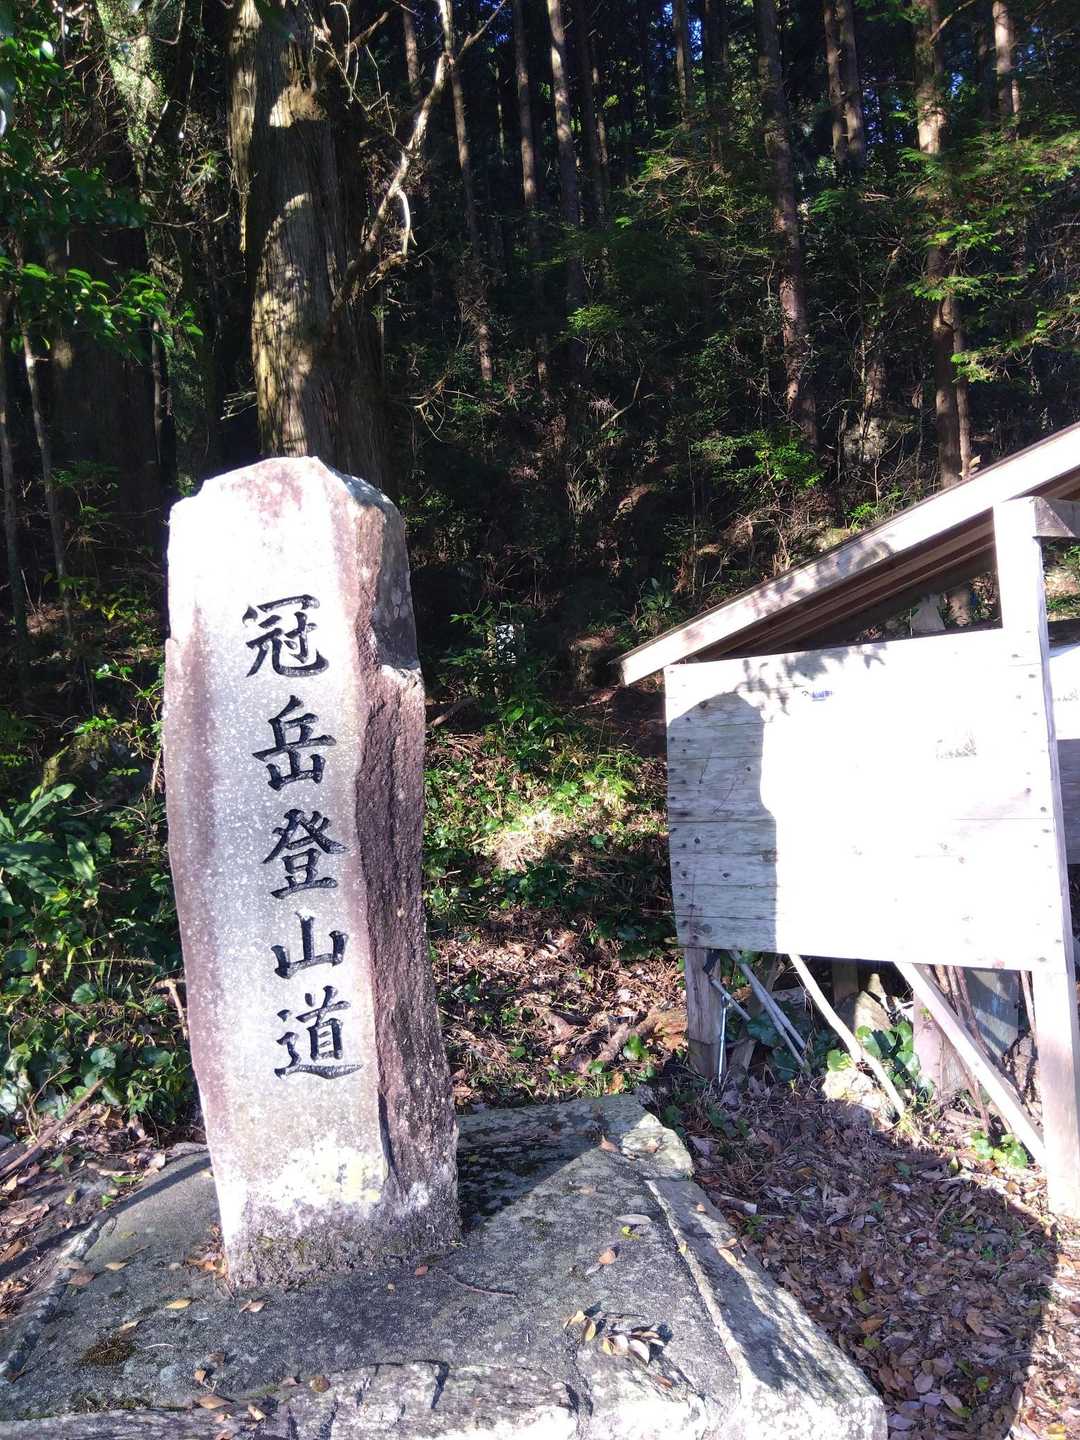 冠岳登山道